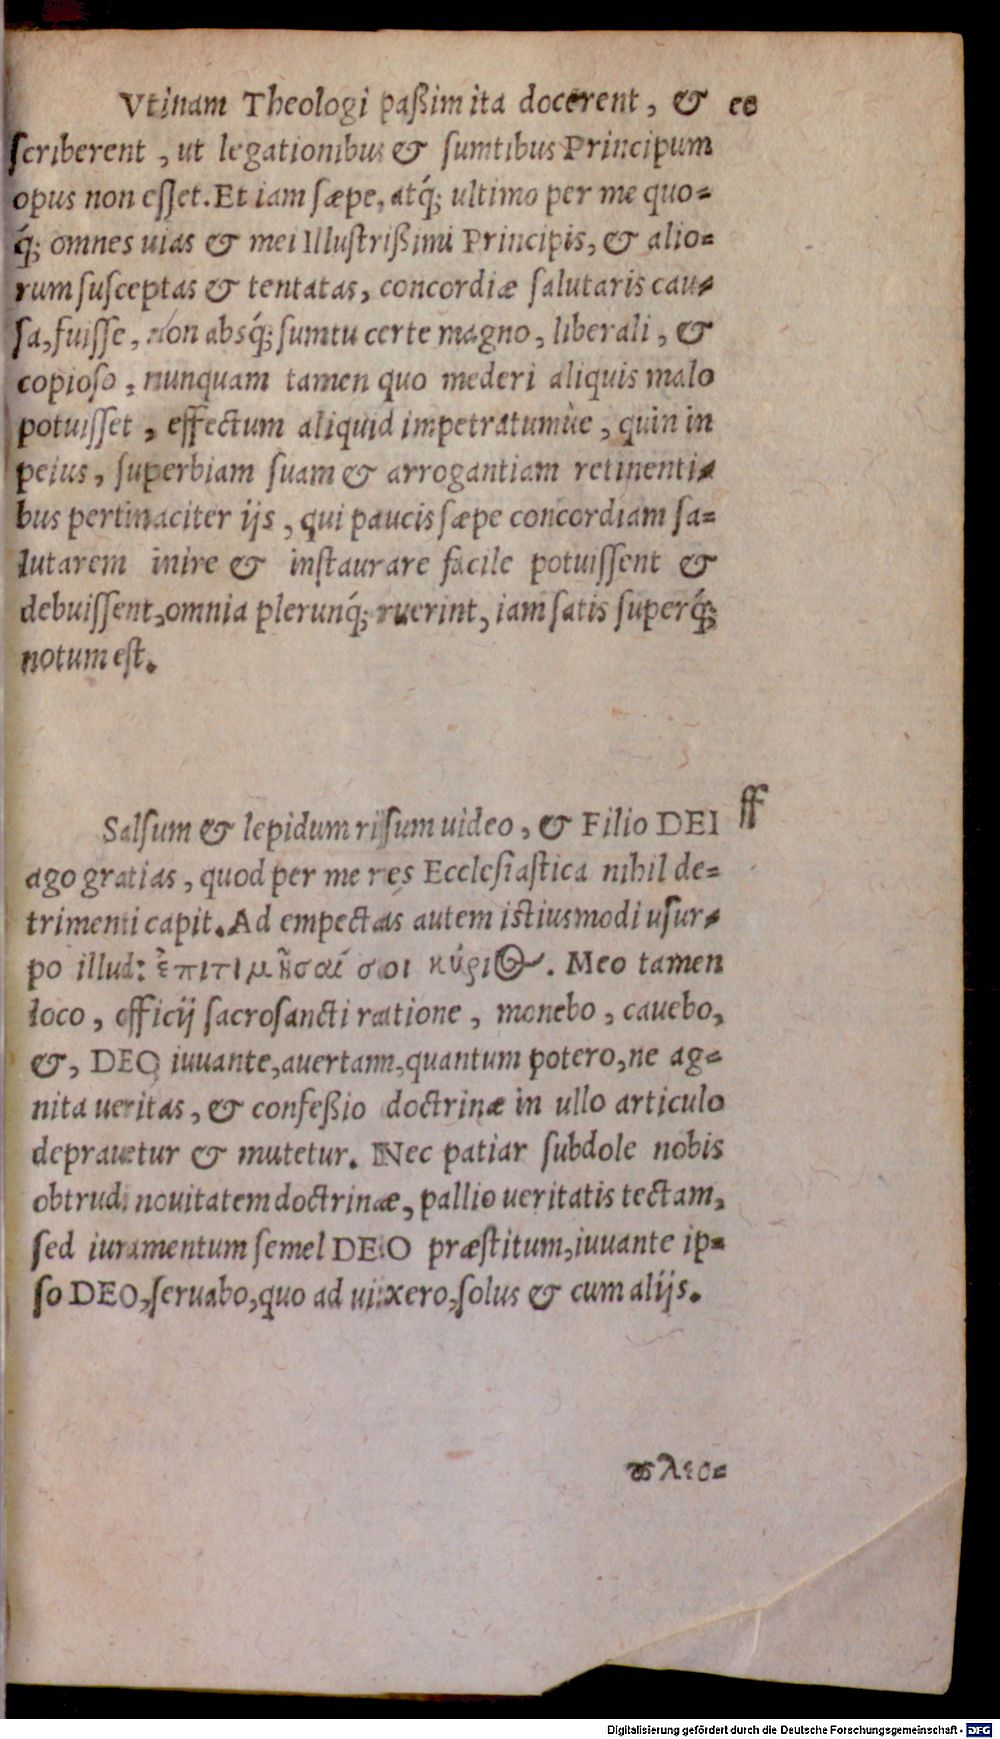 Vtinam Theologi paßim ita docerent, & ee
scriberent, ut legationibus & sumtibus Principum
opus non esset. Et iam sæpe, atq́; ultimo per me quo=
q́; omnes uias & mei Illustrißimi Principis, & alio=
rum susceptas & tentatas, concordiæ salutaris cau=
sa, fuisse, non absq́; sumtu certe magno, liberali, &
copioso, nunquam tamen quo mederi aliquis malo
potuisset, effectum aliquid impetratumùe, quin in
peius, superbiam suam & arrogantiam retinenti=
bus pertinaciter ijs, qui paucis sæpe concordiam sa=
lutarem inire & instaurare facile potuissent &
debuissent, omnia plerunq́; ruerint, iam satis superq́;
notum est.
Salsum & lepidum risum uideo, & Filio DEI ff
ago gratias, quod per me res Ecclesiastica nihil de=
trimenti capit. Ad empectas autem istiusmodi usur=
po illud: ἐπιτιμῆσαί σοι κύριος. Meo tamen
loco, officij sacrosancti ratione, monebo, cauebo,
&, DEO iuuante, auertam, quantum potero, ne ag=
nita ueritas, & confeßio doctrinæ in ullo articulo
deprauetur & mutetur. Nec patiar subdole nobis
obtrudi nouitatem doctrinæ, pallio ueritatis tectam,
sed iuramentum semel DEO præstitum, iuuante ip=
so DEO, seruabo, quo ad uixero, solus & cum alijs.
Digitalisierung gefördert durch die Deutsche Forschungsgemeinschaft - DFG